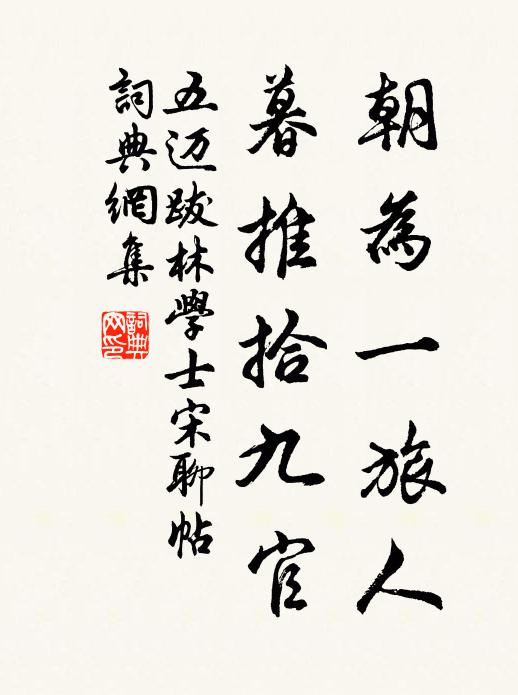 朝為一旅人
暮推拾九官
五迈跋林學士宋聊帖
詞典網集
詞典网印